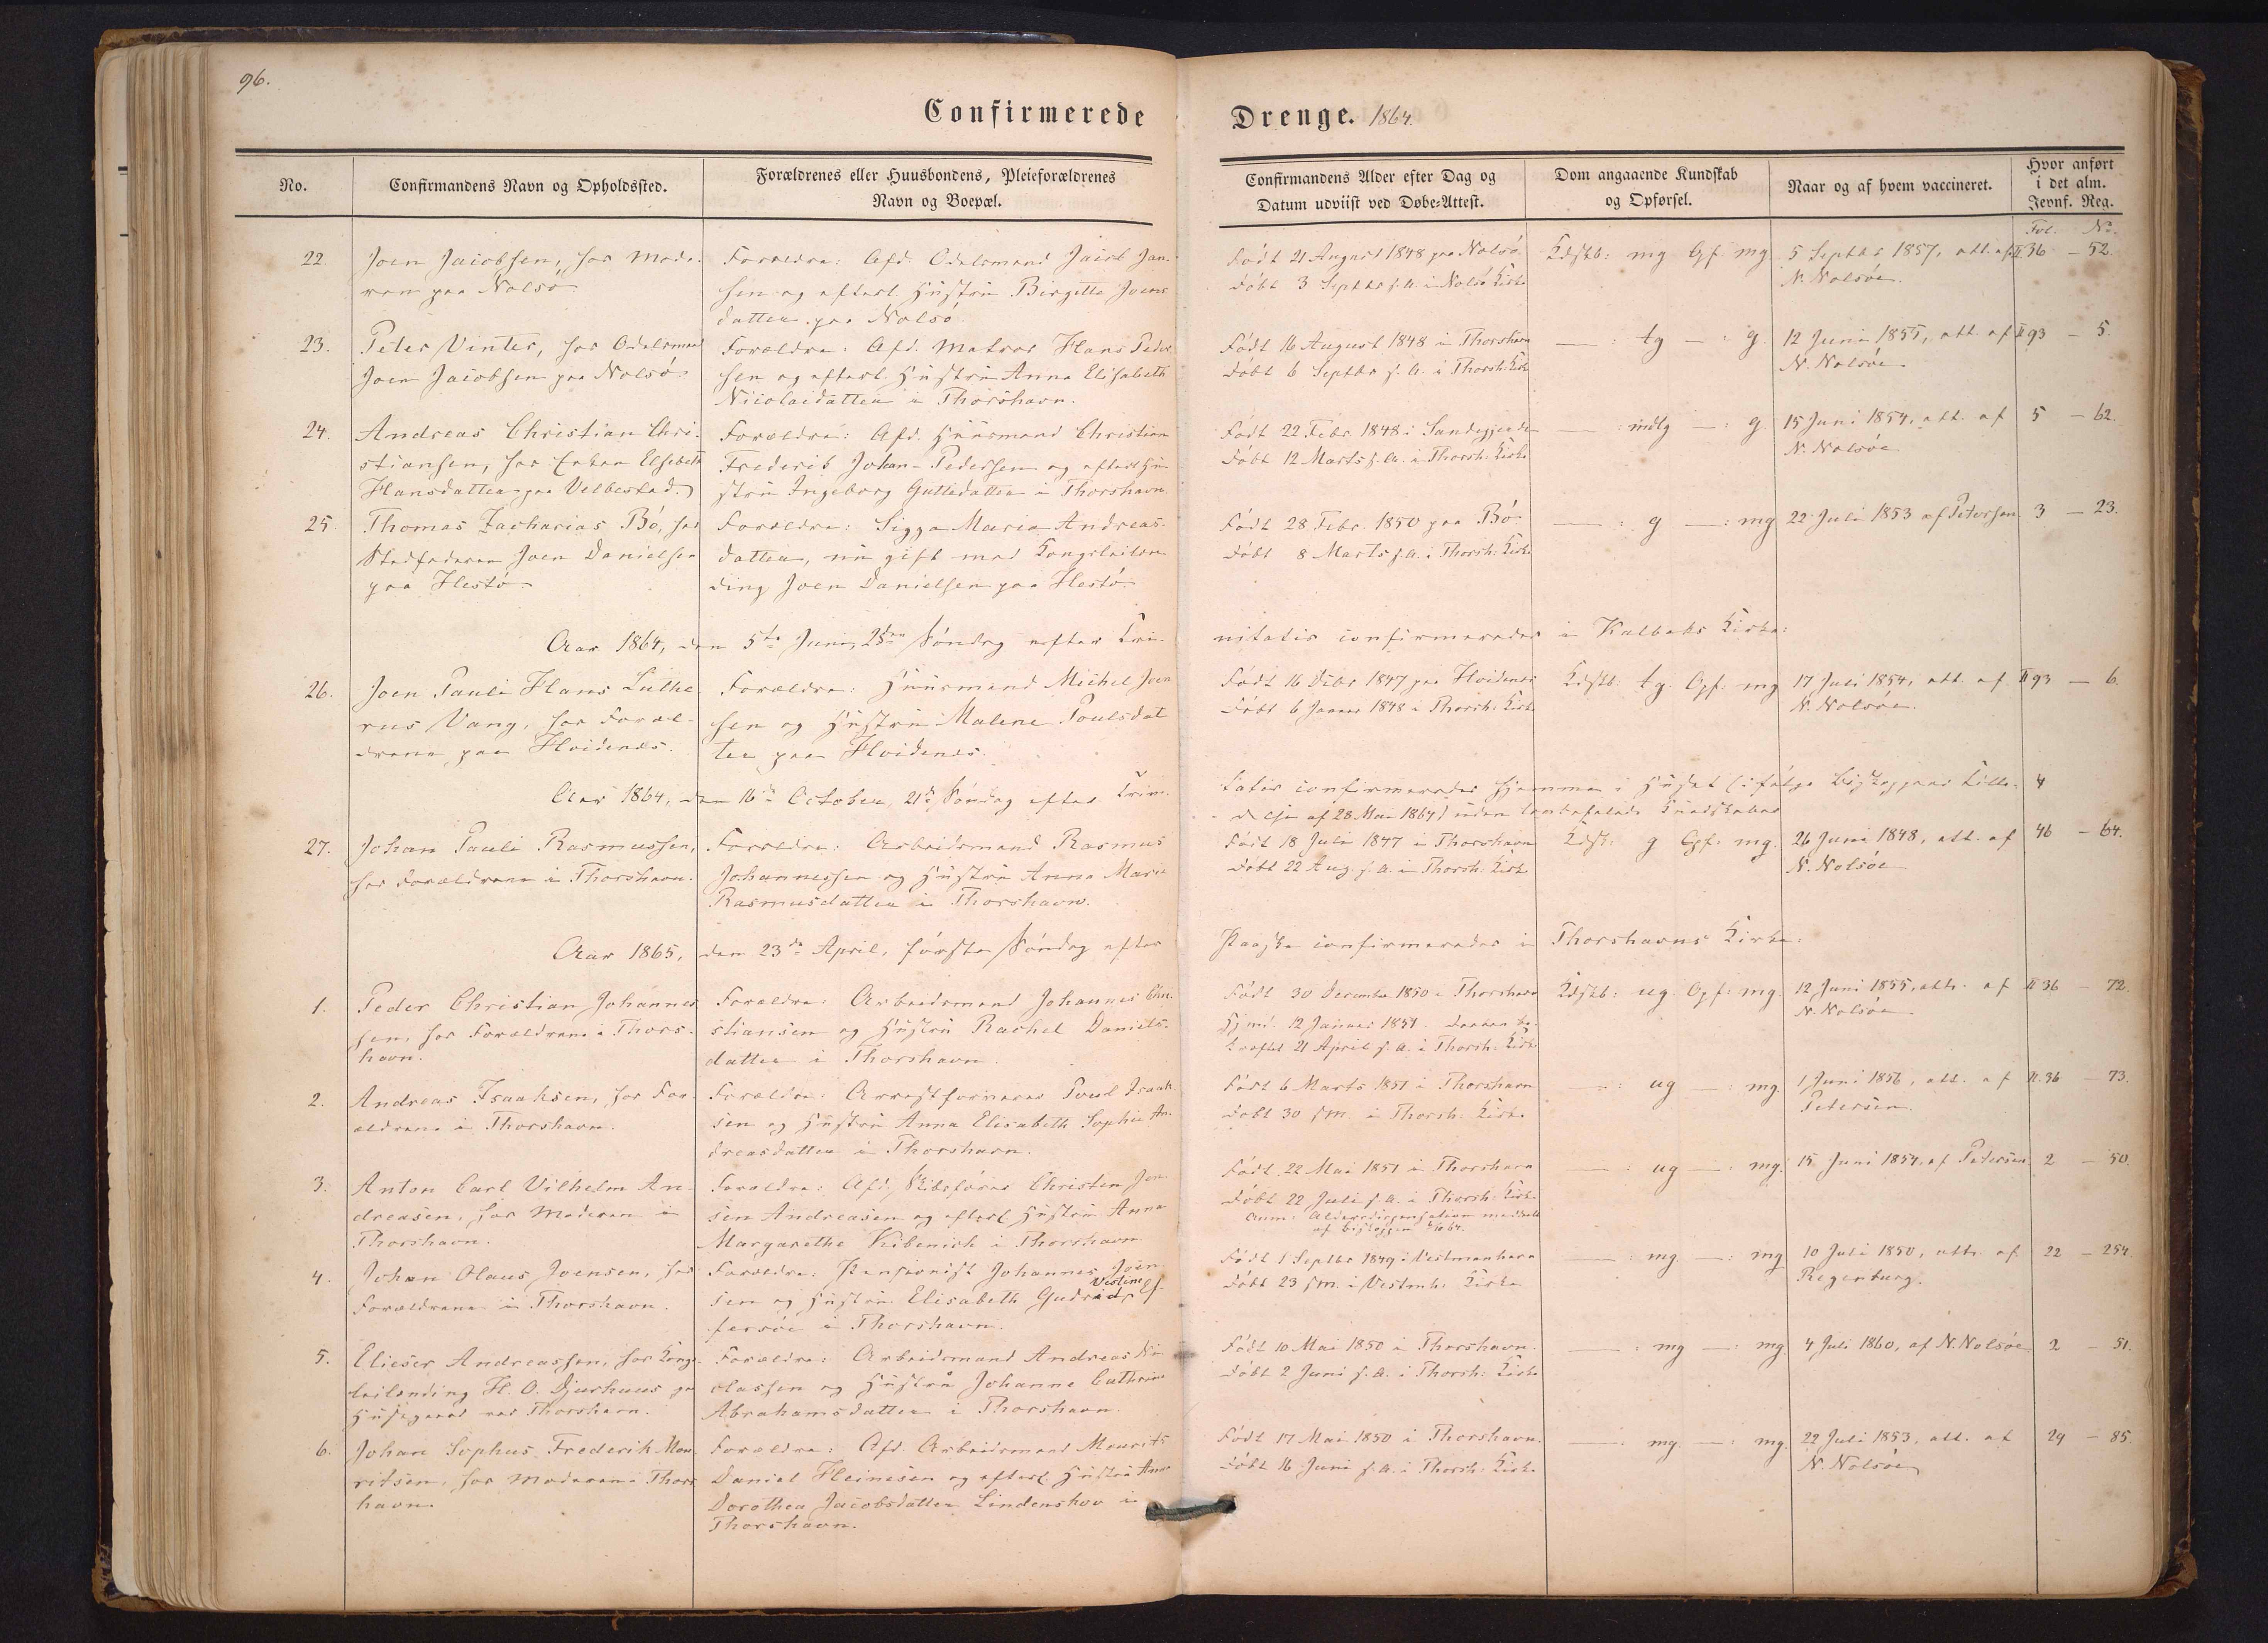 96.
Confirmerede Drenge. 1864.
No.
Confirmandens Navn og Opholdssted.
Forældrenes eller Huusbondens, Pleieforældrenes
Navn og Boepæl.
Confirmandens Alder efter Dag og
Datum udviist ved Døbe-Attest.
Dom angaaende Kundskab
og Opførsel.
Naar og af hvem vaccineret.
Hvor anført
i det alm.
Jevnf. Reg.
Fol. No.
22.
Joen Jacobsen, hos Mode-
ren paa Nolsö
Forældre: Afd. Odelsmand Jacob Jan-
sen og efterl. Hustru Birgitte Joens-
datter paa Nolsö.
Født 21 August 1848 paa Nolsö
Döbt 3 Septbr s. A. i Nolsö Kirke
Kdskb: mg Opf: mg
5 Septbr 1857, att. af
N. Nolsöe.
II 36 - 52.
23.
Peter Vinter, hos Odelsmand
Joen Jacobsen paa Nolsö.
Forældre: Afd. Matros Hans Peder-
sen og efterl. Hustru Anna Elisabeth
Nicolaidatter i Thorshavn.
Født 16 August 1848 i Thorshavn
Döbt 6 Septbr s. A. i Thorsh. Kirke
— : tg — : g.
12 Juni 1855, att. af
N. Nolsöe
II 93 - 5.
24.
Andreas Christian Chri-
stiansen, hos Enken Elsebeth
Hansdatter paa Velbestad.
Forældre: Afd. Huusmand Christian
Frederik Johan-Pedersen og efterl. Hu-
stru Ingeborg Guttedatter i Thorshavn.
Født 22 Febr. 1848 i Sandegjerde
Döbt 12 Marts s. A. i Thorsh. Kirke
— : mdlg — : g
15 Juni 1854, att. af
N. Nolsöe
5 - 62.
25.
Thomas Zacharias Bö, hos
Stedfaderen Joen Danielsen
paa Hestö
Forældre: Sigga Maria Andreas-
datter, nu gift med Kongsleilæn-
ding Joen Danielsen paa Hestö.
Født 28 Febr. 1850 paa Bö
Döbt 8 Marts s. A. i Thorsh: Kirke
— : g — : mg
22 Juli 1853 af Petersen
3 - 23.
Aar 1864, den 5te Juni, 2den Söndag efter Tri-
nitatis confirmeredes i Kalbaks Kirke:
26.
Joen Pauli Hans Luthe-
rus Vang, hos Foræl-
drene paa Hvidenæs.
Forældre: Huusmand Michel Joen-
sen og Hustru Malene Poulsdat-
ter paa Hvidenæs
Født 16 Decbr 1847 paa Hvidenæs
Döbt 6 Januar 1848 i Thorsh: Kirke
Kdskb: tg. Opf: mg
17 Juli 1854, att. af
N. Nolsöe.
II 93 - 6.
Aar 1864, den 16de October, 21de Söndag efter Trini-
tatis confirmeredes hjemme i Huset (ifölge Biskoppens Tilla-
delse af 28 Mai 1864) uden
4
27.
Johan Pauli Rasmussen,
hos Forældrene i Thorshavn.
Forældre: Arbeidsmand Rasmus
Johannessen og Hustru Anna Marie
Rasmusdatter i Thorshavn.
Født 18 Juli 1847 i Thorshavn
Döbt 22 Aug. s. A. i Thorsh. Kirke
Kdsk: g Opf: mg.
26 Juni 1848, att. af
N. Nolsöe
46 - 64.
Aar 1865, den 23de April, förste Söndag efter
Paaske confirmeredes i Thorshavns Kirke:
1.
Peder Christian Johannes-
sen, hos Forældrene i Thors-
havn.
Forældre: Arbeidsmand Johannes Chri-
stiansen og Hustru Rachel Daniels-
datter i Thorshavn.
Født 30 December 1850 i Thorshavn
Hjmd. 12 Januar 1851. Daaben be-
kræftet 21 April s. A. i Thorsh: Kirke
Kdskb: ug. Opf: mg.
12 Juni 1855, att. af
N. Nolsöe
II 36 - 72.
2.
Andreas Isaaksen, hos For-
ældrene i Thorshavn.
Forældre: Arrestforvarer Poul Isaak-
sen og Hustru Anna Elisabeth Sophie An-
dreasdatter i Thorshavn.
Født 6 Marts 1851 i Thorshavn
Döbt 30 s. M. i Thorsh: Kirke
— : ug — : mg.
1 Juni 1856, att. af
Petersen.
II. 36 - 73.
3.
Anton Carl Vilhelm An-
dreasen, hos Moderen i
Thorshavn.
Forældre: Afd. Skibsförer Christen Jen-
sen Andreasen og efterl. Hustru Anna
Margarethe Kibenich i Thorshavn.
Født 22 Mai 1851 i Thorshavn
Döbt 22 Juli s. A. i Thorsh: Kirke
Anm: Aldersdispensation meddelt
af Biskoppen
— : ug — : mg.
15 Juni 1854, af Petersen
2 - 50.
4.
Johan Olaus Joensen, hos
Forældrene i Thorshavn.
Forældre: Pensionist Johannes Joen-
sen og Hustru Elisabeth Gudrid Vestine Ef-
fersöe i Thorshavn.
Født 1 Septbr 1849 i Vestmanhavn
Döbt 23 s. M. i Vestmh: Kirke
— : mg. — : mg
10 Juli 1850, att. af
Regenburg.
22 - 254.
5.
Elieser Andreassen, hos Kongs-
leilænding H. O. Djurhuus paa
Husegaard ved Thorshavn.
Forældre: Arbeidsmand Andreas Ni-
olassen og Hustru Johanne Cathrine
Abrahamsdatter i Thorshavn.
Født 10 Mai 1850 i Thorshavn.
Döbt 2 Juni s. A. i Thorsh: Kirke
— : mg — : mg.
4 Juli 1860, af N. Nolsöe
2 - 51.
6.
Johan Sophus Frederik Mou-
ritsen, hos Moderen i Thors-
havn.
Forældre: Afd. Arbeidsmand Mourits
Daniel Heinesen og efterl. Hustru Anne
Dorothea Jacobsdatter Lindenskov i
Thorshavn.
Født 17 Mai 1850 i Thorshavn.
Döbt 16 Juni s. A. i Thorsh: Kirke
— : mg. — : mg.
22 Juli 1853, att. af
N. Nolsöe
24 - 85